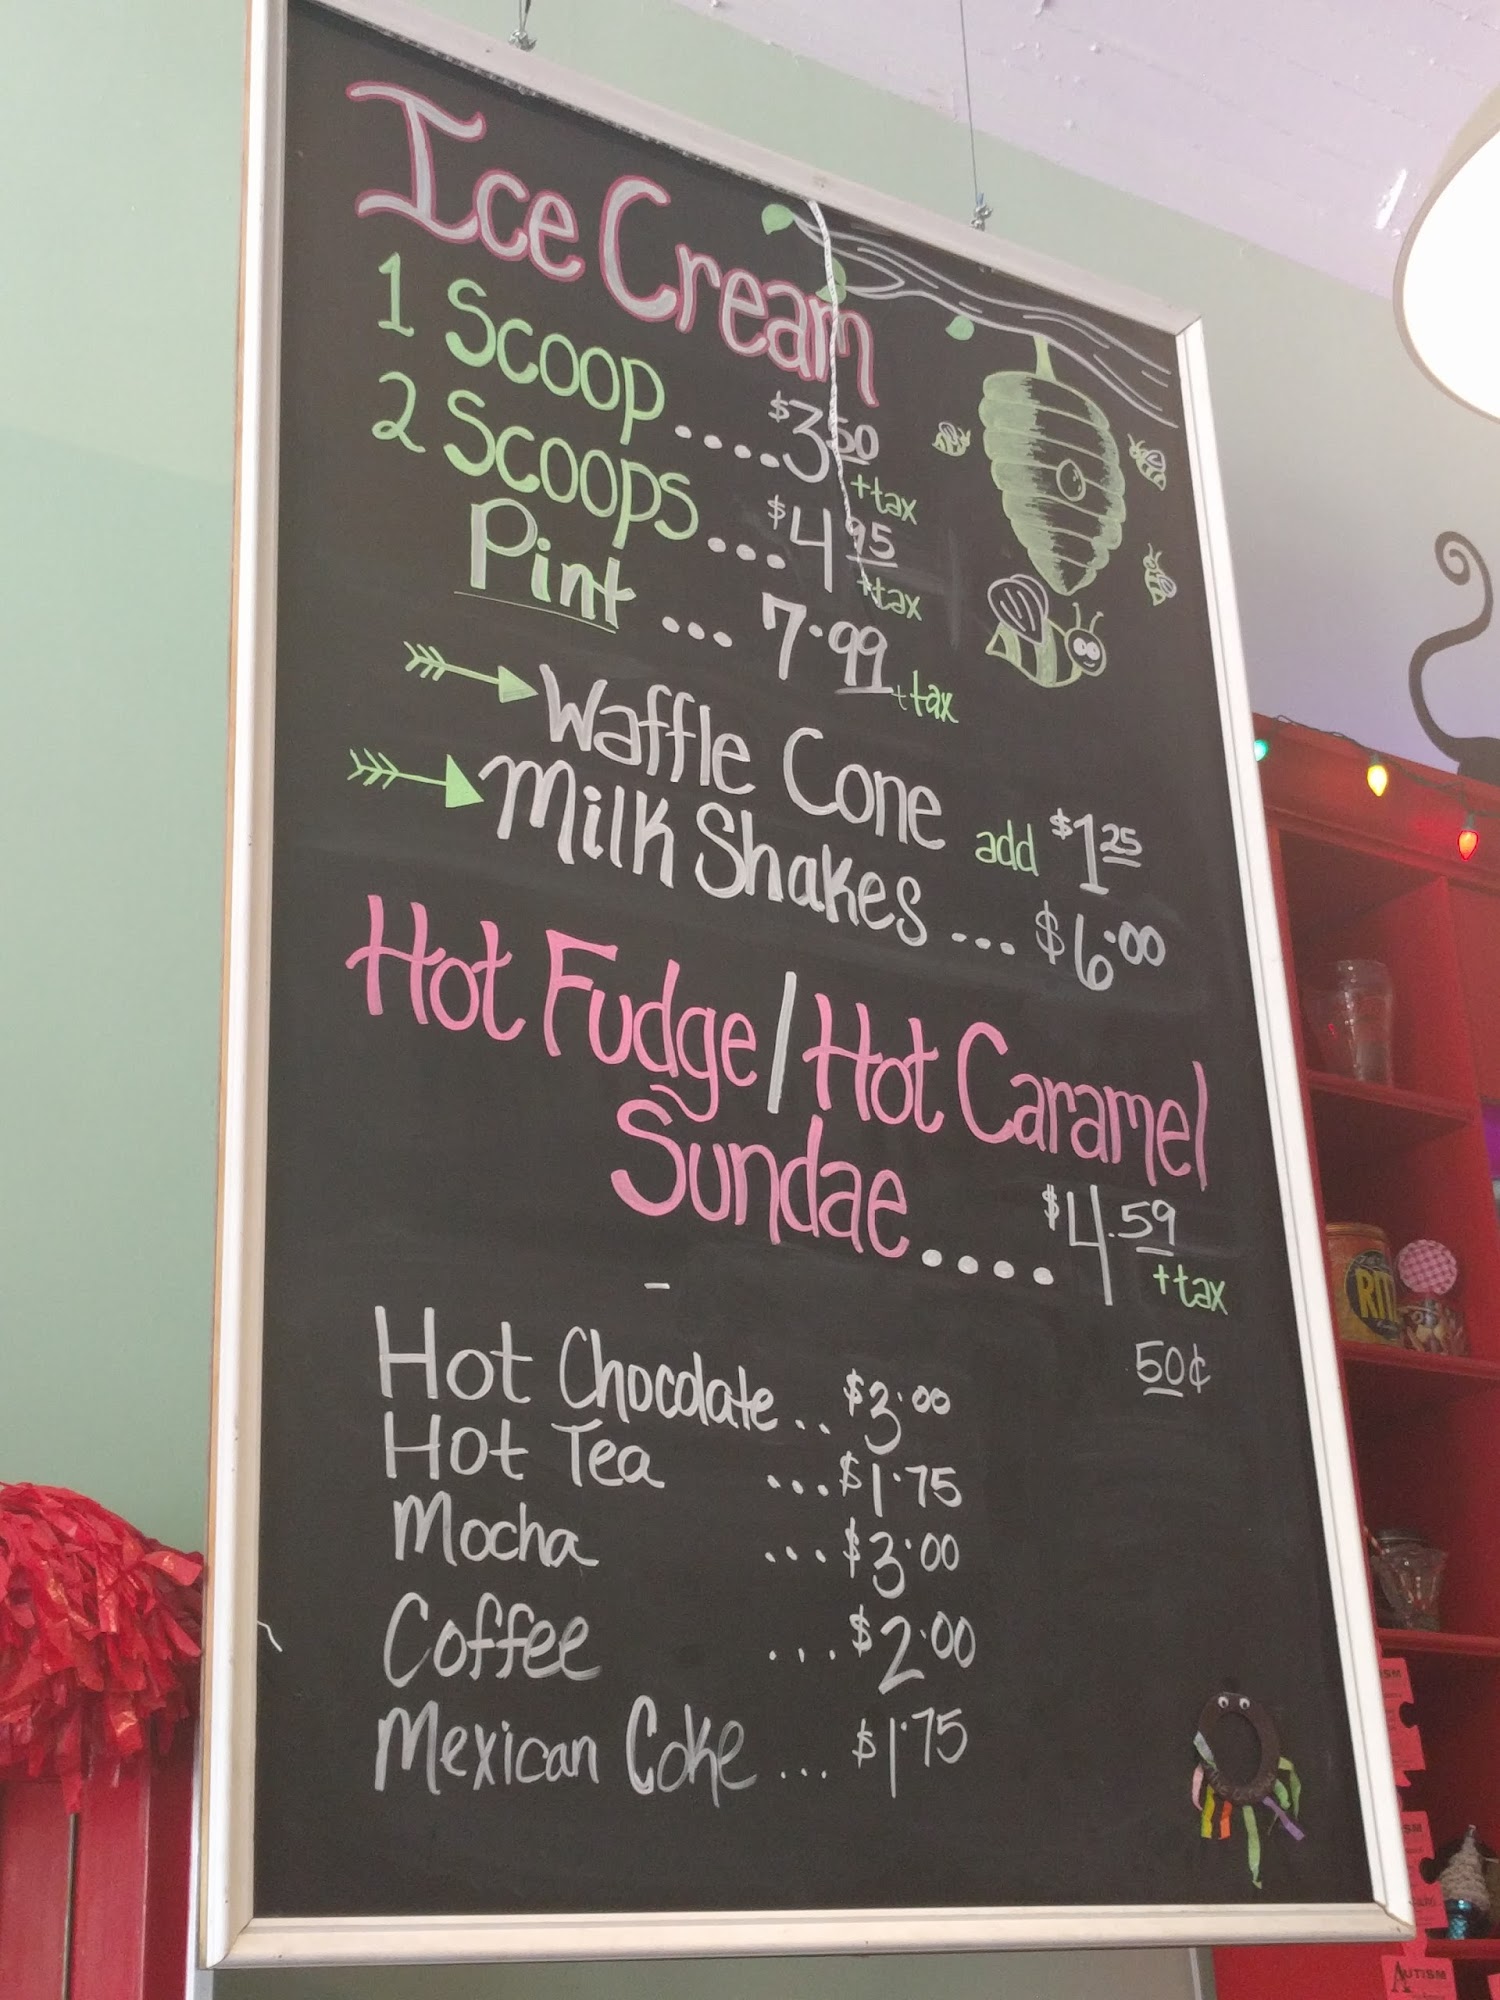 Ice Cream
1 Scoop....$3.50 +tax
2 Scoops....$4.95 +tax
Pint ... 7.99 +tax
Waffle Cone add $1.25
Milk Shakes ... $6.00
Hot Fudge/Hot Caramel
Sundae.... $4.59
+tax
50¢
Hot Chocolate .. $3.00
Hot Tea ...$1.75
Mocha ...$3.00
Coffee ...$2.00
Mexican Coke ... $1.75
RIT
AUTISM